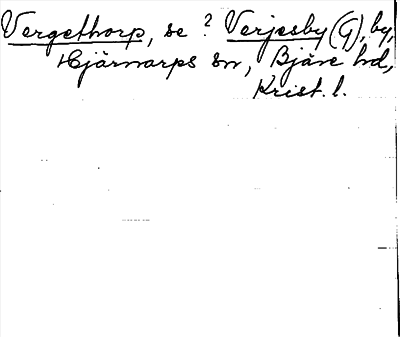 Vergethorp, se ? Verjesby (G), by,
Hjärnarps sn, Bjäre hd,
Krist. l.